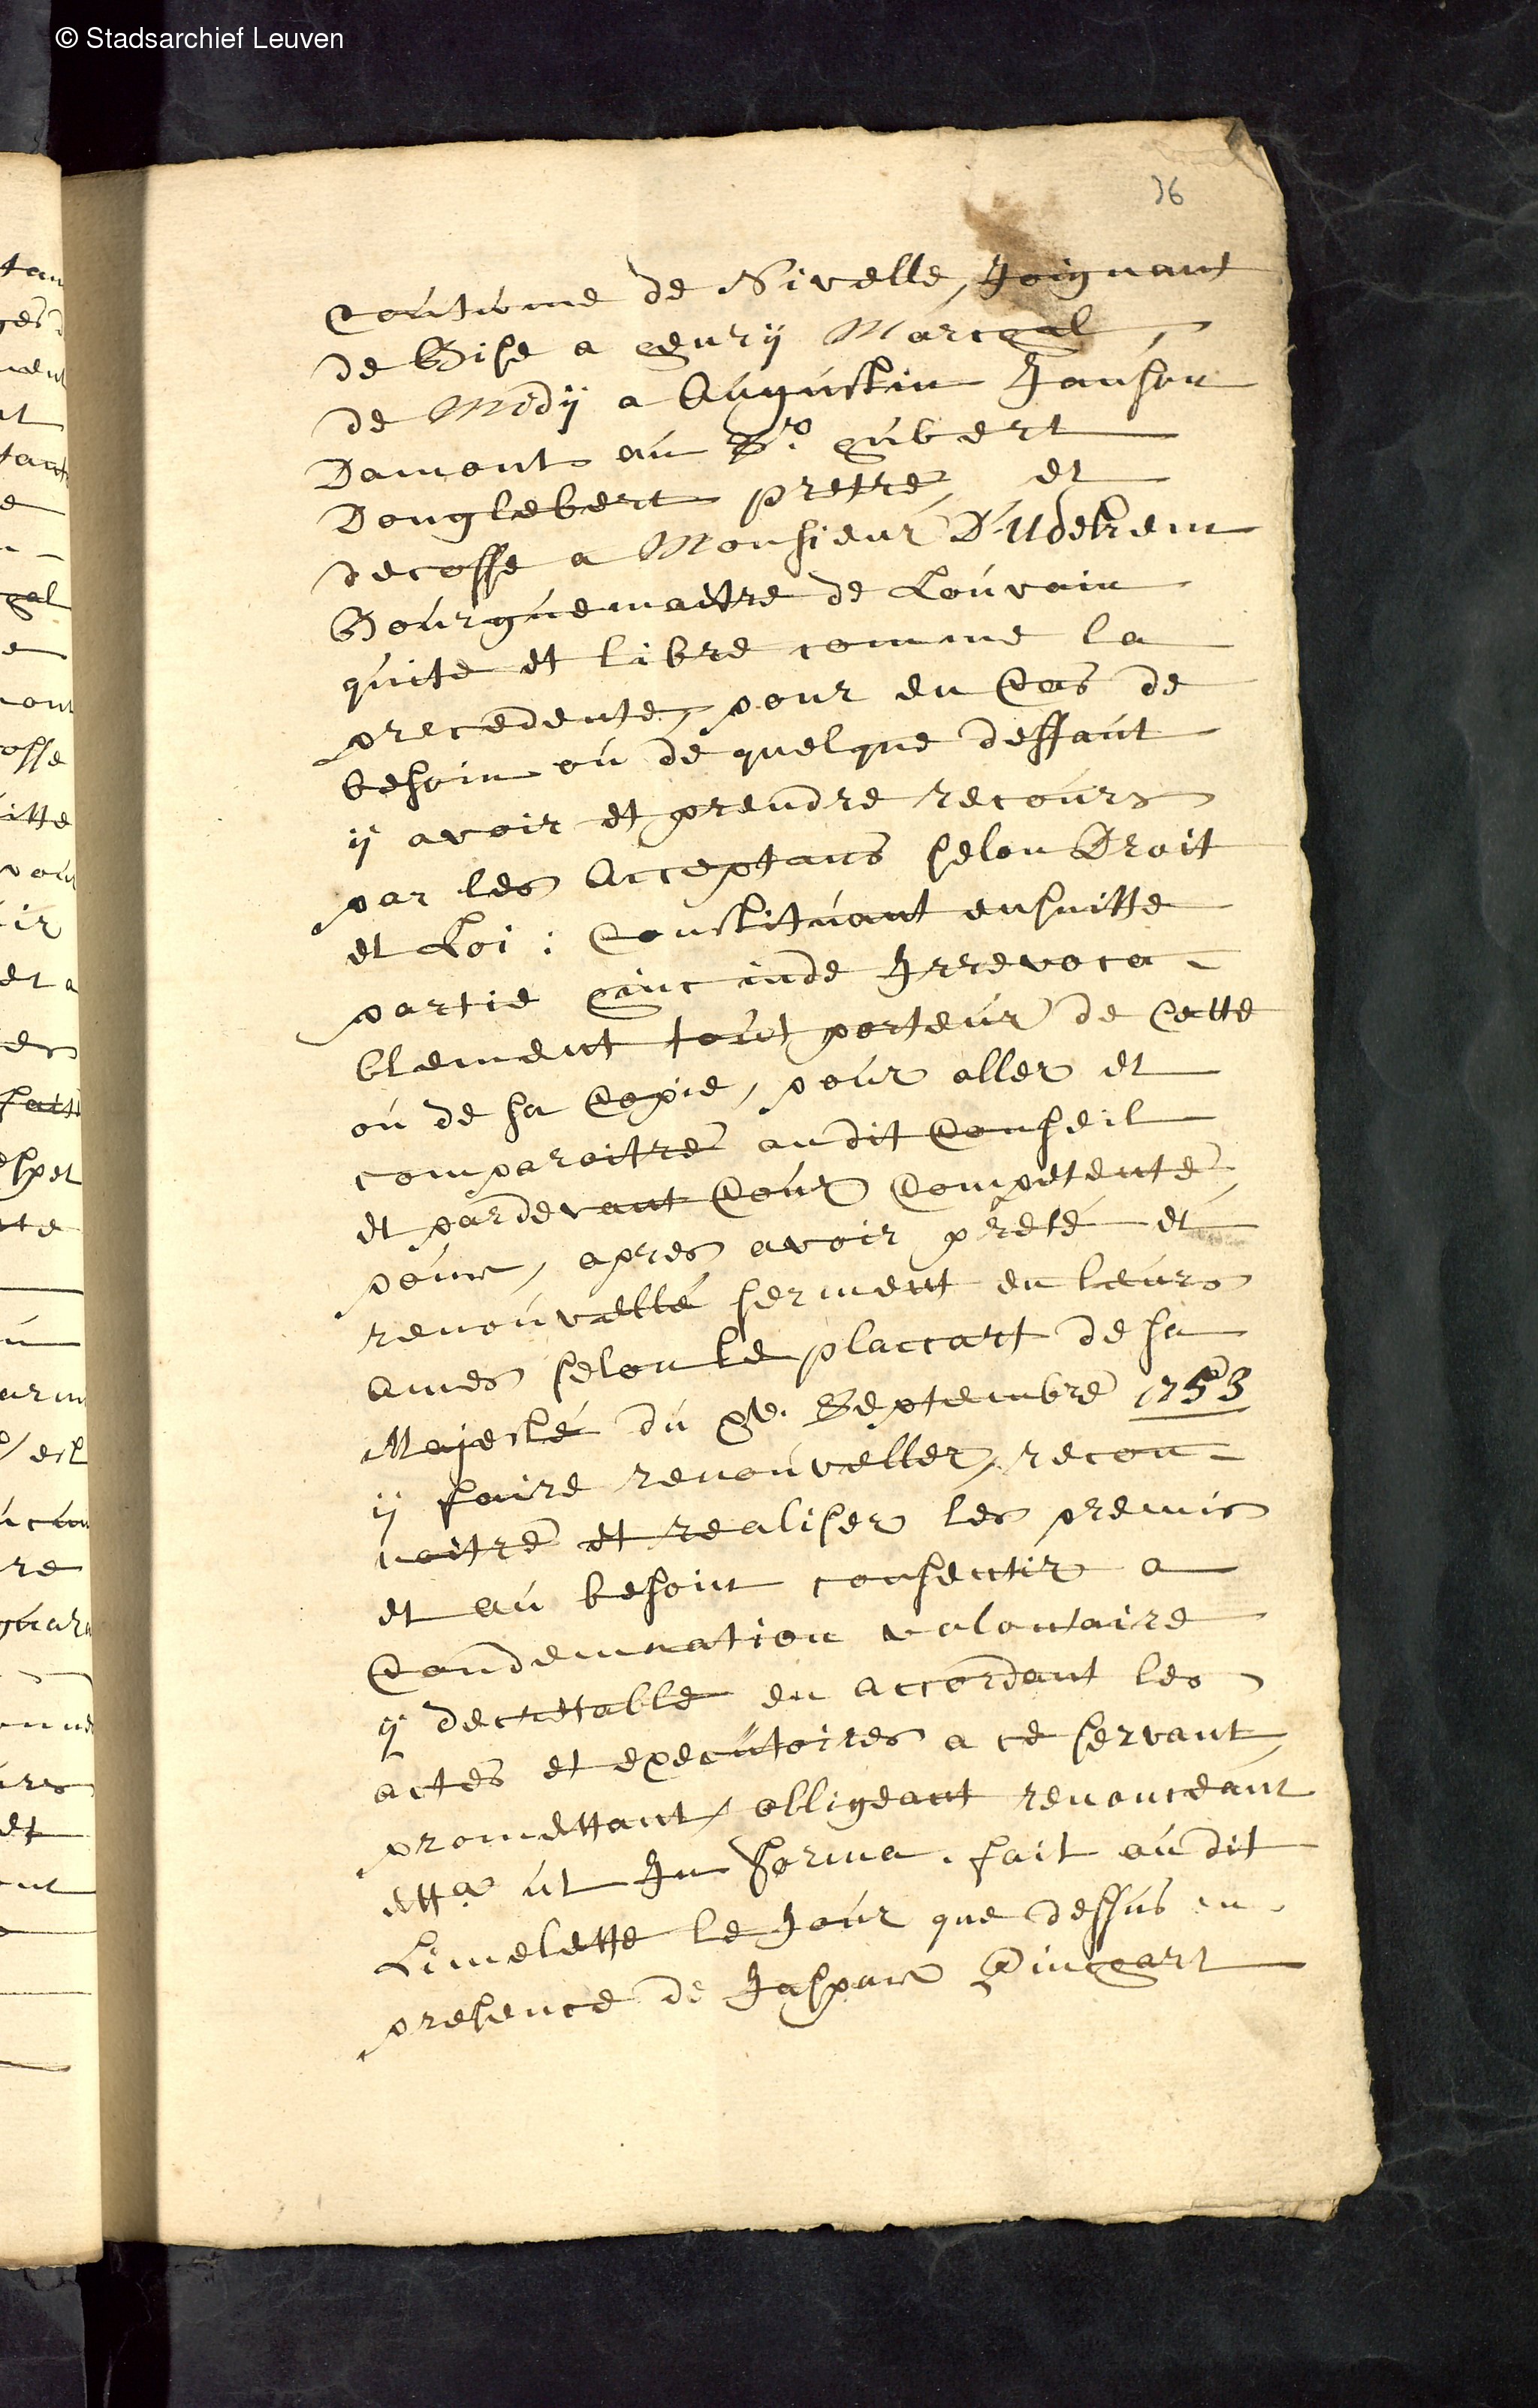 © Stadsarchief Leuven
36
Coutume de Nivelle, Joignant
de Bise a henrÿ Marcqal,
de Midÿ a Augustin Janson
Damont au Sr. hubert
Donglebert pretre, et
decosse a Monsieur D'Udekem
Bourguemaitre de Louvain
quite et libre comme la
precedente, pour en Cas de
besoin ou de quelque deffaut
ÿ avoir et prendre recours
par les Acceptans selon Droit
et Loi : Constituant ensuitte
partie hinc inde Irrevoca-
blement tout porteur de Cette
ou de sa Copie, pour aller et
comparoitre audit Conseil
et pardevant Cour Competente,
pour, apres avoir preté et
renouvellé serment en leurs
ames selon le placcart de sa
Majesté du 9e. Septembre 1753
ÿ faire renouveller, recon-
noitre et realiser les premis
et au besoin consentir a
Condemnation volontaire
ÿ decretable en accordant les
actes et executoires a ce servant,
promettant, obligeant renonceant
ettca ut In forma. fait audit
Limelette le Jour que dessus en
presence de Jaspar